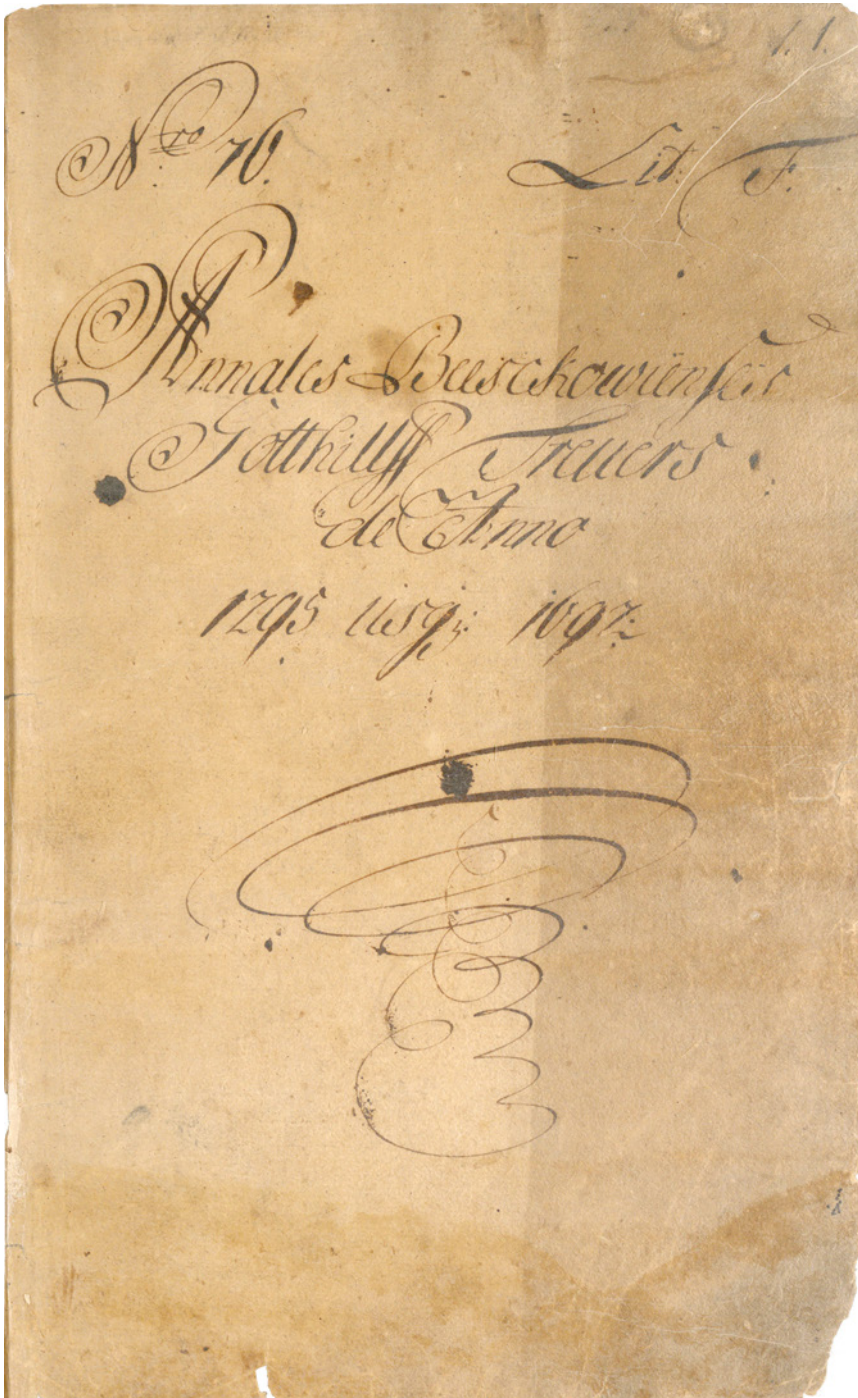 1. 1.
Nro 76. Lit. F.
Annales Beesckowienses
Gotthilff Treuers
de Anno
1295 usq; 1697.